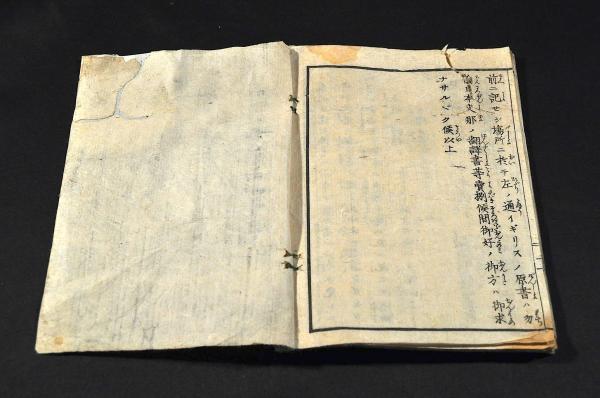 前ニ記セシ場所ニ於テ左ノ通イギリスノ原書ハ勿
論日本支那ノ翻譯書等賣捌候間御好ノ御方ハ御求
ナサルベク候以上